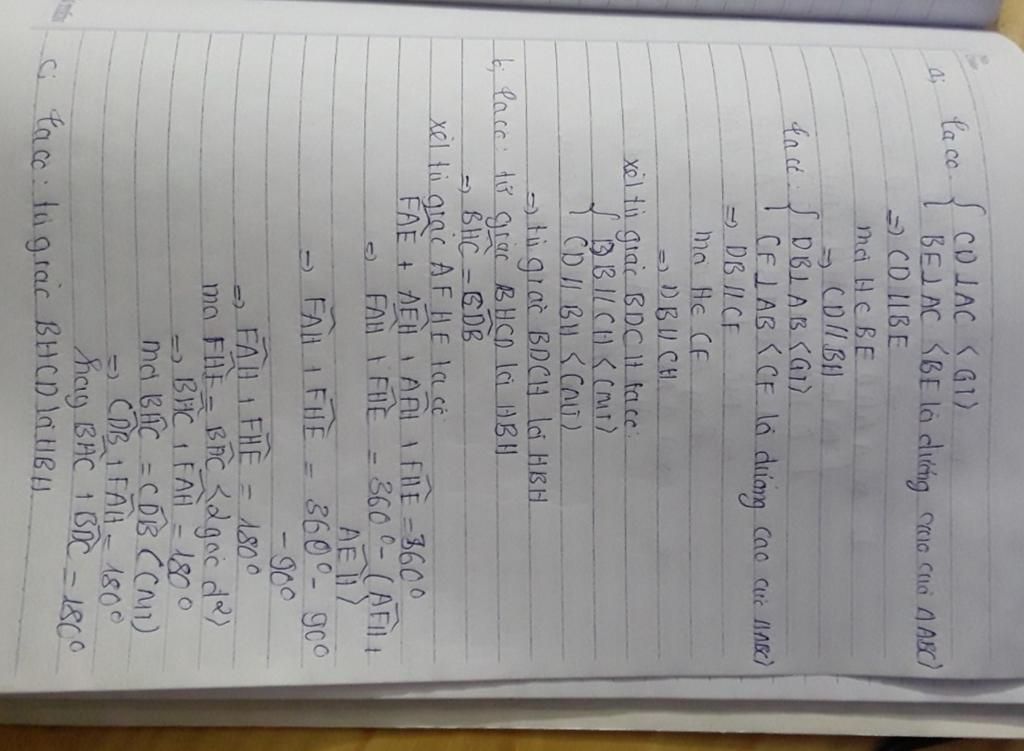 a, ta có: { CD ⊥ AC < GT)
BE ⊥ AC < BE là đường cao của ΔABC)
⇒ CD // BE
mà H ∈ BE
⇒ CD // BH
ta có: { DB ⊥ AB < GT)
CF ⊥ AB < CF là đường cao của ΔABC)
⇒ DB // CF
mà H ∈ CF
⇒ DB // CH
xét tứ giác BDCH ta có:
{ DB // CH < CMT)
CD // BH < CMT)
⇒ tứ giác BDCH là HBH
b, ta có: tứ giác BHCD là HBH
⇒ BHC = CDB
xét tứ giác AFHE ta có
FAE + AEH + AFH + FHE = 360°
⇒ FAH + FHE = 360° - (AFH +
AEH)
⇒ FAH + FHE = 360° - 90°
- 90°
⇒ FAH + FHE = 180°
mà FHE = BHC < 2 góc đ²)
⇒ BHC + FAH = 180°
mà BHC = CDB (CMT)
⇒ CDB + FAH = 180°
hay BAC + BDC = 180°
c, ta có: tứ giác BHCD là HBH